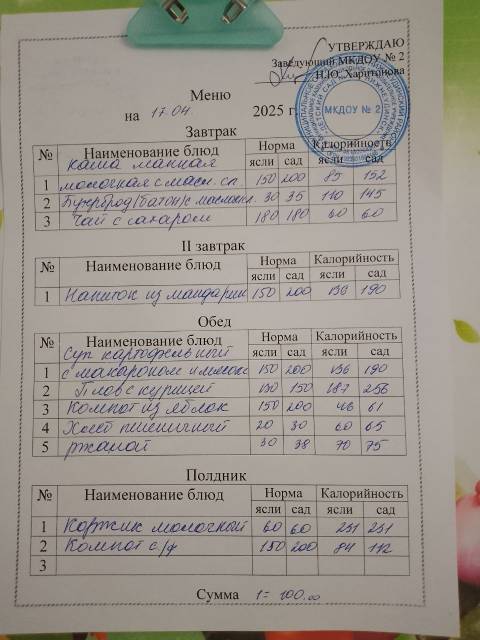 УТВЕРЖДАЮ
Заведующий МКДОУ № 2
Н.Ю. Харитонова
МКДОУ № 2
Меню
на 17.04 2025 г.
Завтрак
№ Наименование блюд Норма Калорийность
ясли сад ясли сад
каша манная
1 молочная с масл. сл. 150 200 85 152
2 Бутерброд (батон) с маслом 30 35 110 145
3 Чай с сахаром 180 180 60 60
II завтрак
№ Наименование блюд Норма Калорийность
ясли сад ясли сад
1 Напиток из мандарин 150 200 136 190
Обед
№ Наименование блюд Норма Калорийность
ясли сад ясли сад
Суп картофельный
1 с макароном и мясом 150 200 136 190
2 Плов с курицей 130 150 187 256
3 Компот из яблок 150 200 46 61
4 Хлеб пшеничный 20 30 60 65
5 ржаной 30 38 70 75
Полдник
№ Наименование блюд Норма Калорийность
ясли сад ясли сад
1 Коржик молочный 60 60 231 231
2 Компот с/ф 150 200 84 112
3
Сумма 1= 100.00